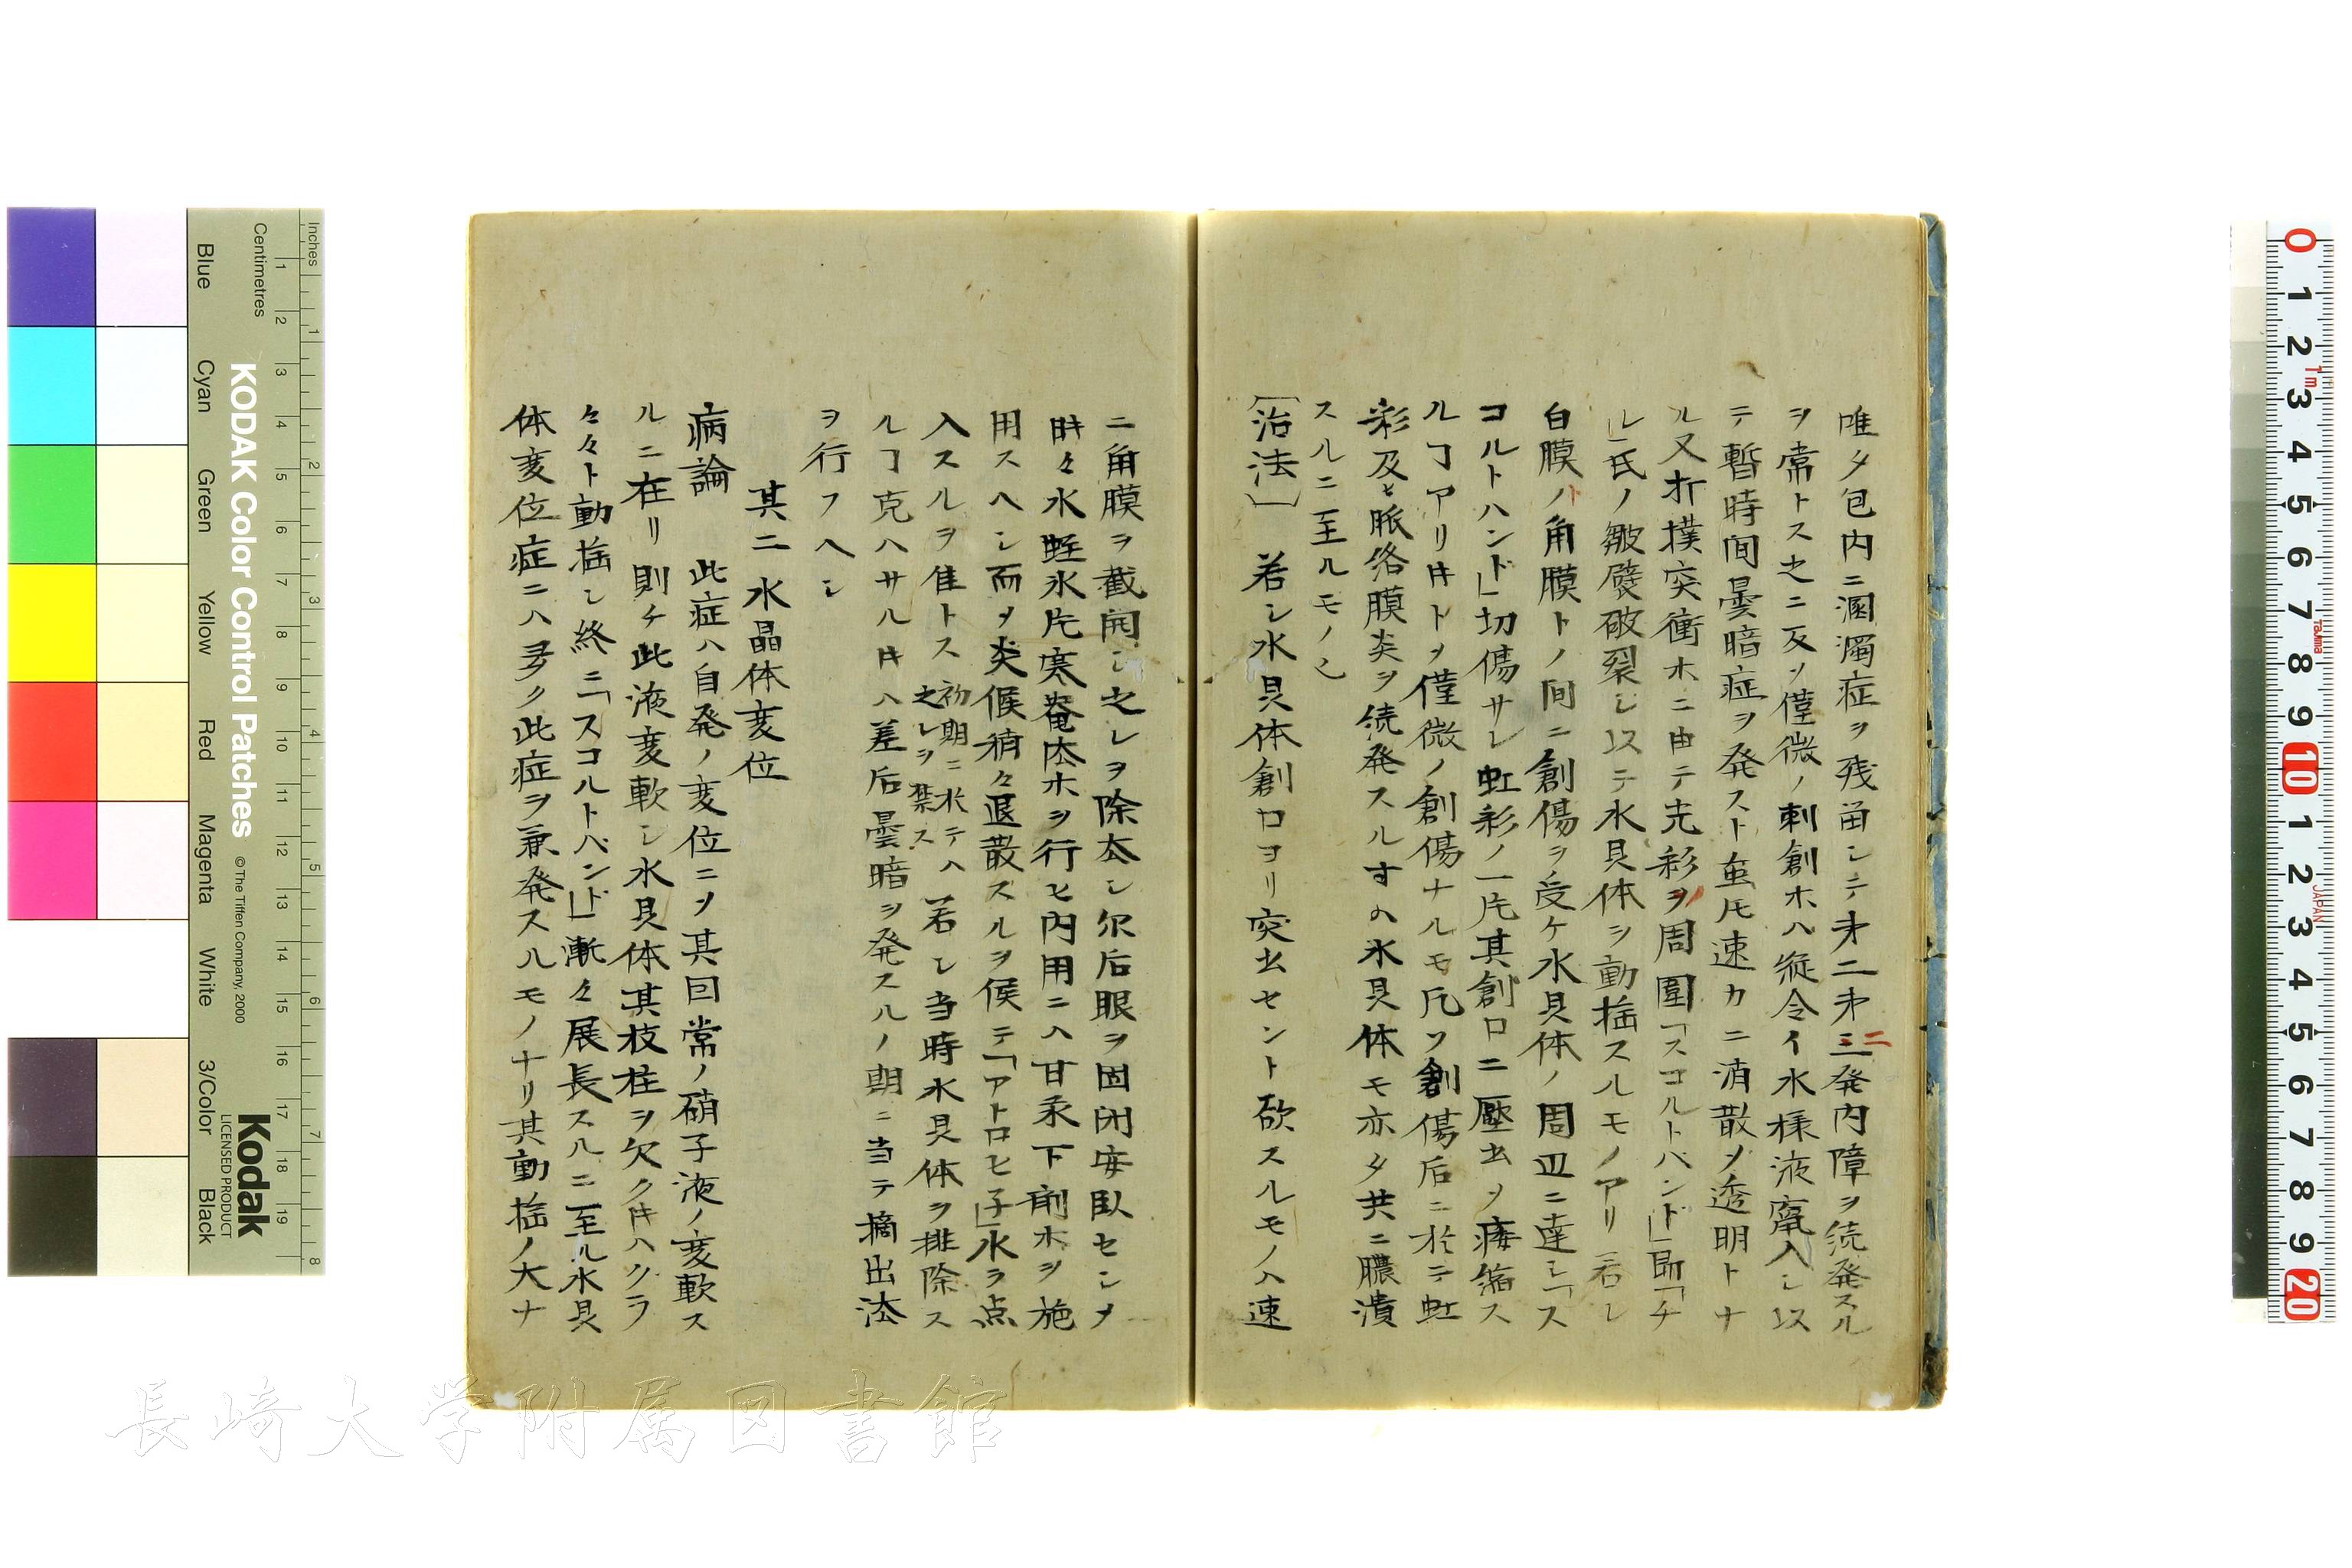 唯タ包内ニ溷濁症ヲ残畄シテ才二才三二発内障ヲ続発スル
ヲ常トス之ニ反ソ僅微ノ刺創ホハ縦令イ水様液竄入シ以
テ暫時間曇暗症ヲ発スト𧈧モ速カニ消散ソ透明トナ
ル又打撲突衝ホニ由テ光彩ヲ周圍「スコルトバンド」即「チ
ル」氏ノ皺襞破裂シ以テ水具体ヲ動揺スルモノアリ若シ
白膜ノト角膜トノ間ニ創傷ヲ受ケ水具体ノ周辺ニ達シ「ス
コルトハンド」切傷サレ虹彩ノ一片其創口ニ壓出ソ痿縮ス
ルヿアリ𪜈トソ僅微ノ創傷ナルモ凡ソ創傷后ニ於テ虹
彩及ヒ脈絡膜炎ヲ続発スルすハ水具体モ亦タ共ニ膿潰
スルニ至ルモノ也
「治法」 若シ水具体創口ヨリ突出セント欲スルモノハ速
ニ角膜ヲ截開シ之レヲ除去シ尓后眼ヲ固閉安臥センメ
時々水蛭氷片寒罨法ホヲ行ヒ内用ニハ甘汞下剤ホヲ施
用スヘシ而ソ炎候稍々退散スルヲ候テ「アトロヒ子」水ヲ点
入スルヲ佳トス 初期ニ於テハ之レヲ禁ス 若シ当時水具体ヲ排除ス
ルヿ克ハサル𪜈ハ差后曇暗ヲ発スルノ期ニ当テ摘出法
ヲ行フヘシ
其二水晶体変位
病論 此症ハ自発ノ変位ニソ其因常ノ硝子液ノ変軟ス
ルニ在リ則チ此液変軟シ水具体其枝柱ヲ欠ク𪜈ハクラ
々々ト動揺シ終ニ「スコルトバンド」漸々展長スルニ至ル水具
体変位症ニハ多ク此症ヲ兼発スルモノナリ其動揺ノ大ナ
KODAK Color Control Patches
© The Tiffen Company, 2000
Kodak
LICENSED PRODUCT
Inches
Centimetres
Blue
Cyan
Green
Yellow
Red
Magenta
White
3/Color
Black
長崎大学附属図書館